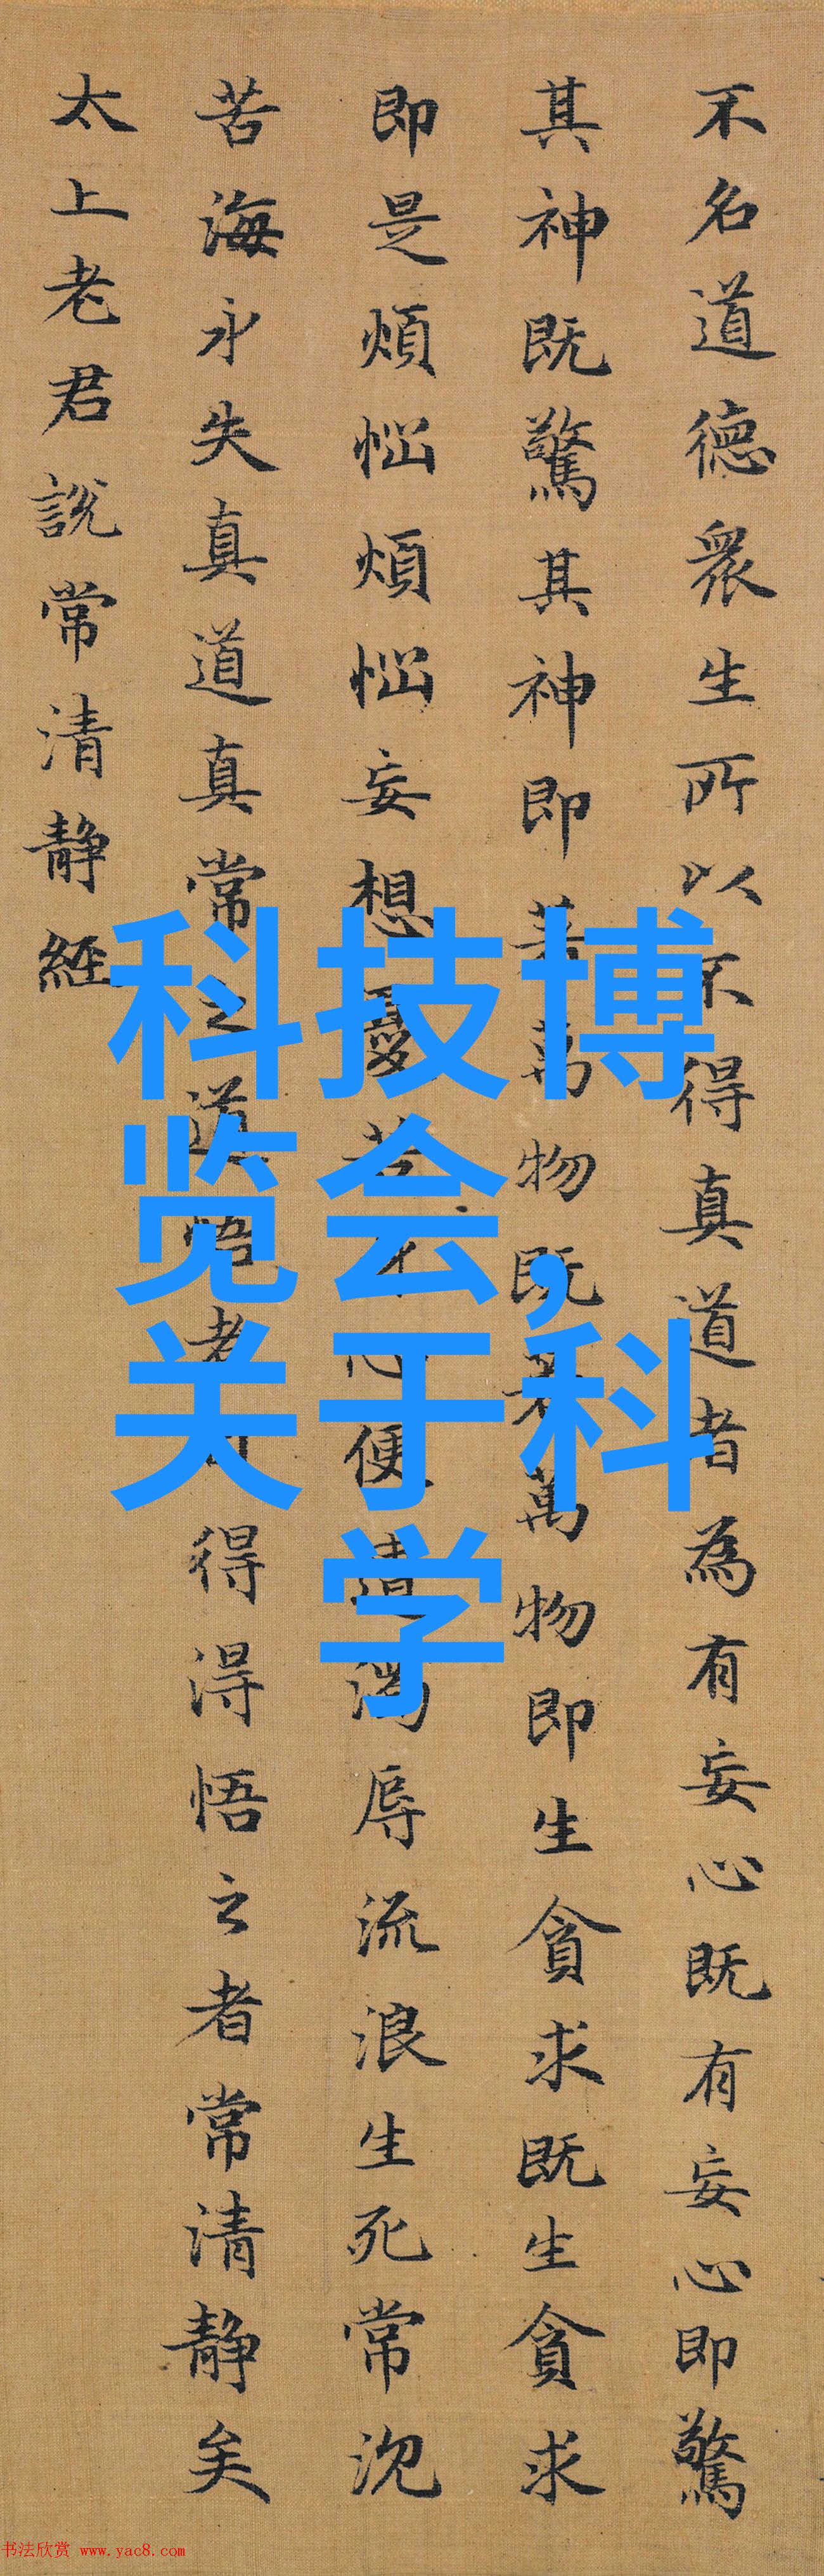 不名道德衆生所以不得真道者為有妄心既有妄心即驚
其神既驚其神即著萬物既著萬物即生貪求既生貪求
即是煩惱煩惱妄想憂苦心便遭濁辱流浪生死常沉
苦海永失真道真常之道悟者得淂悟之者常清静矣
太上老君說常清静經
科技博
览会,
关于科
学
书法欣赏 www.yac8.com